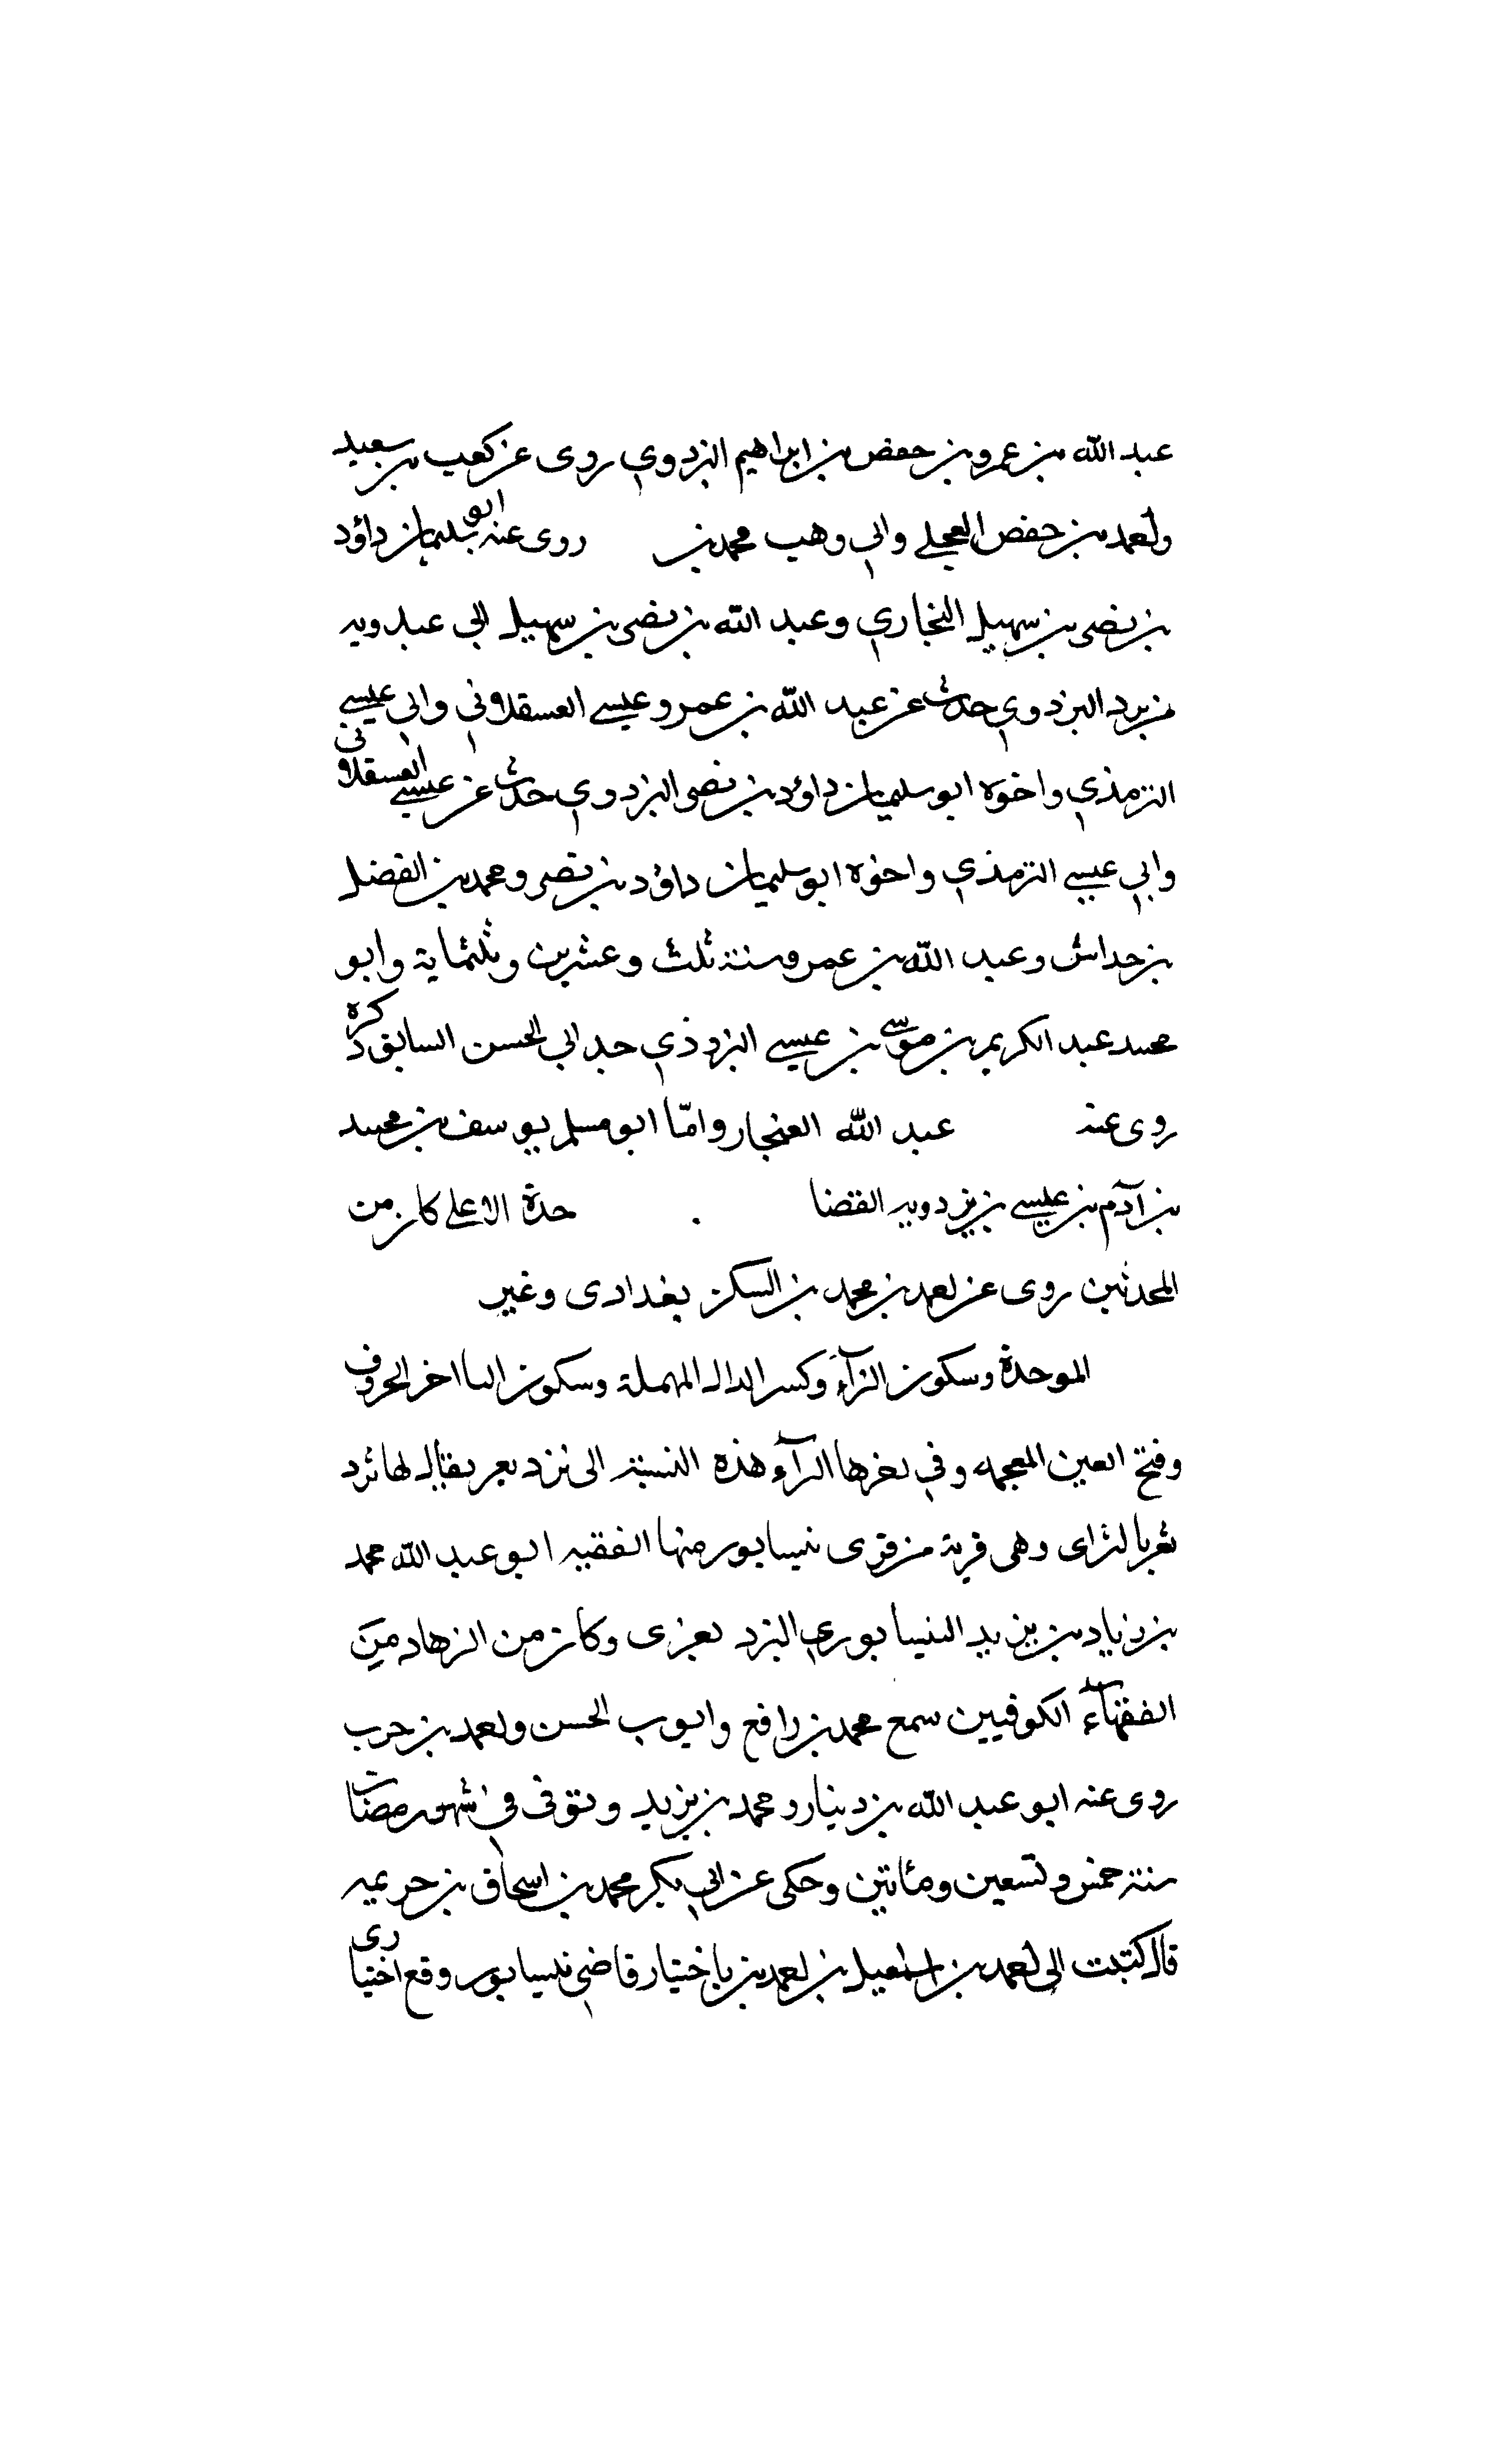 عبد الله بن عمرو بن حفص بن ابراهيم البزدوي روى عن كعب بن سعيد
واحمد بن حفص العجلي وابي وهب محمد بن روى عنه ابو سليمان داؤد
بن نصر بن سهيل البخاري وعبد الله بن نصر بن سهيل ابي عبدويه
بزد البزدوي حدث عن عبد الله بن عمرو وعيسى العسقلاني وابي عيسى
الترمذي واخوه ابو سليمان داؤد بن نصر البزدوي حدث عن عيسى العسقلاني
وابي عيسى الترمذي واخوه ابو سليمان داؤد بن نصر ومحمد بن الفضل
بن خداش وعبد الله بن عمر سنة ثلث وعشرين وثلثماية وابو
محمد عبد الكريم بن موسى بن عيسى البزدوذي جد ابي الحسن السابق ذكره
روى عنه عبد الله الغنجار وامّا ابو مسلم يوسف بن محمد
بن آدم بن عيسى بن يزدويه القضا حدة الاعلى كان من
المحدثين روى عن احمد بن محمد بن السكن بغدادى وغير
الموحدة وسكون الزآء وكسر الدال المهملة وسكون اليا اخر الحروف
وفتح الغين المعجمه وفي اخرها الرآء هذه النسبة الى بزديغر يقال لها بزد
يغر بالزاى وهى قرية من قرى نيسابور منها الفقيه ابو عبد الله محمد
بن زياد بن يزيد النيسابوري البزد يغرى وكان من الزهاد من
الفقهآء الكوفيين سمع محمد بن رافع وايوب الحسن واحمد بن حرب
روى عنه ابو عبد الله بن دينار ومحمد بن يزيد وتوفى في شهر رمضان
سنة خمس وتسعين ومائتين وحكى عن ابي بكر محمد بن اسحاق بن خزيمه
قال كتبت الى احمد بن اسمعيل بن احمد بن باختيار قاضي نيسابور وقع اختيارى